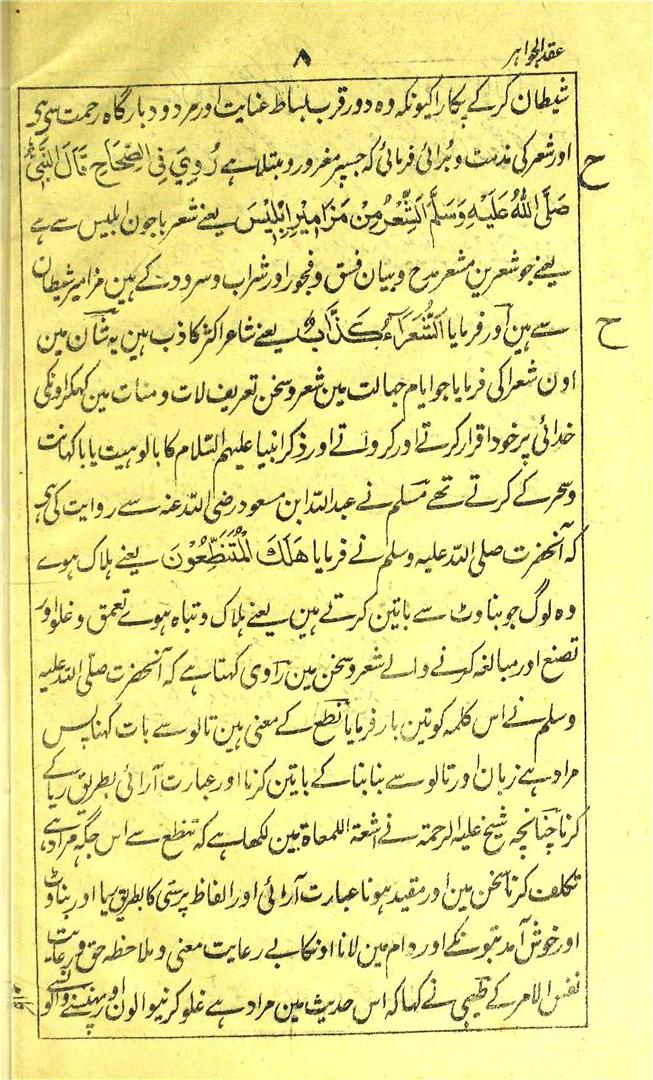 عقد الجواہر
۸
شیطان کرکے پکارا کیونکہ وہ دور قرب بساط عنایت اور مردود بارگاہ رحمت سے ہی
اور شعر کی مذمت و برائی فرمائی کہ جسپر مغرور و مبتلا ہے رُوِيَ فِي الصِّحَاحِ قَالَ النَّبِيُّ
ح
صَلَّى اللهُ عَلَيْهِ وَسَلَّمَ الشِّعْرُ مِنْ مَزَامِيْرِ اِبْلِيْسَ یعنے شعر باجون ابلیس سے ہے
یعنے جو شعرین مشعر مدح و بیان فسق و فجور اور شراب و سرود کے ہین مزامیر شیطان
سے ہین اور فرمایا اَلشُّعَرَآءُ كَذَّابٌ یعنے شاعر اکثر کاذب ہین یہ شان مین
ح
اون شعرا کی فرمایا جو ایام جہالت مین شعر و سخن تعریف لات و منات مین کہکر اونکی
خدائی پر خود اقرار کرتے اور کرواتے اور ذکر انبیا علیہم السلام کا بالوہیت یا با کہانت
و سحر کے کرتے تھے مسلم نے عبد اللہ ابن مسعود رضی اللہ عنہ سے روایت کی ہی
کہ آنحضرت صلی اللہ علیہ وسلم نے فرمایا هَلَكَ الْمُتَنَطِّعُوْنَ یعنے ہلاک ہوے
وہ لوگ جو بناوٹ سے باتین کرتے ہین یعنے ہلاک و تباہ ہوے تعمق و غلو اور
تصنع اور مبالغہ کرنے والے شعر و سخن مین راوی کہتا ہے کہ آنحضرت صلی اللہ علیہ
وسلم نے اس کلمہ کو تین بار فرمایا نطع کے معنی ہین تالو سے بات کہنا پس
مراد ہے زبان اور تالو سے بنا بنا کے باتین کرنا اور عبارت آرائی بطریق ریا کے
کرنا چنانچہ شیخ علیہ الرحمۃ نے اشعۃ اللمعاۃ مین لکھا ہے کہ تنطع سے اس جگہ مراد ہے
تکلف کرنا سخن مین اور مقید ہونا عبارت آرائی اور الفاظ پرستی کا بطریق ریا اور بناوٹ
اور خوش آمد کے اور دام مین لانا اونکا بے رعایت معنی و ملاحظہ حق و رعایت
نفس الامر کے طیبی نے کہا کہ اس حدیث مین مراد ہے غلو کرنیوالون اور